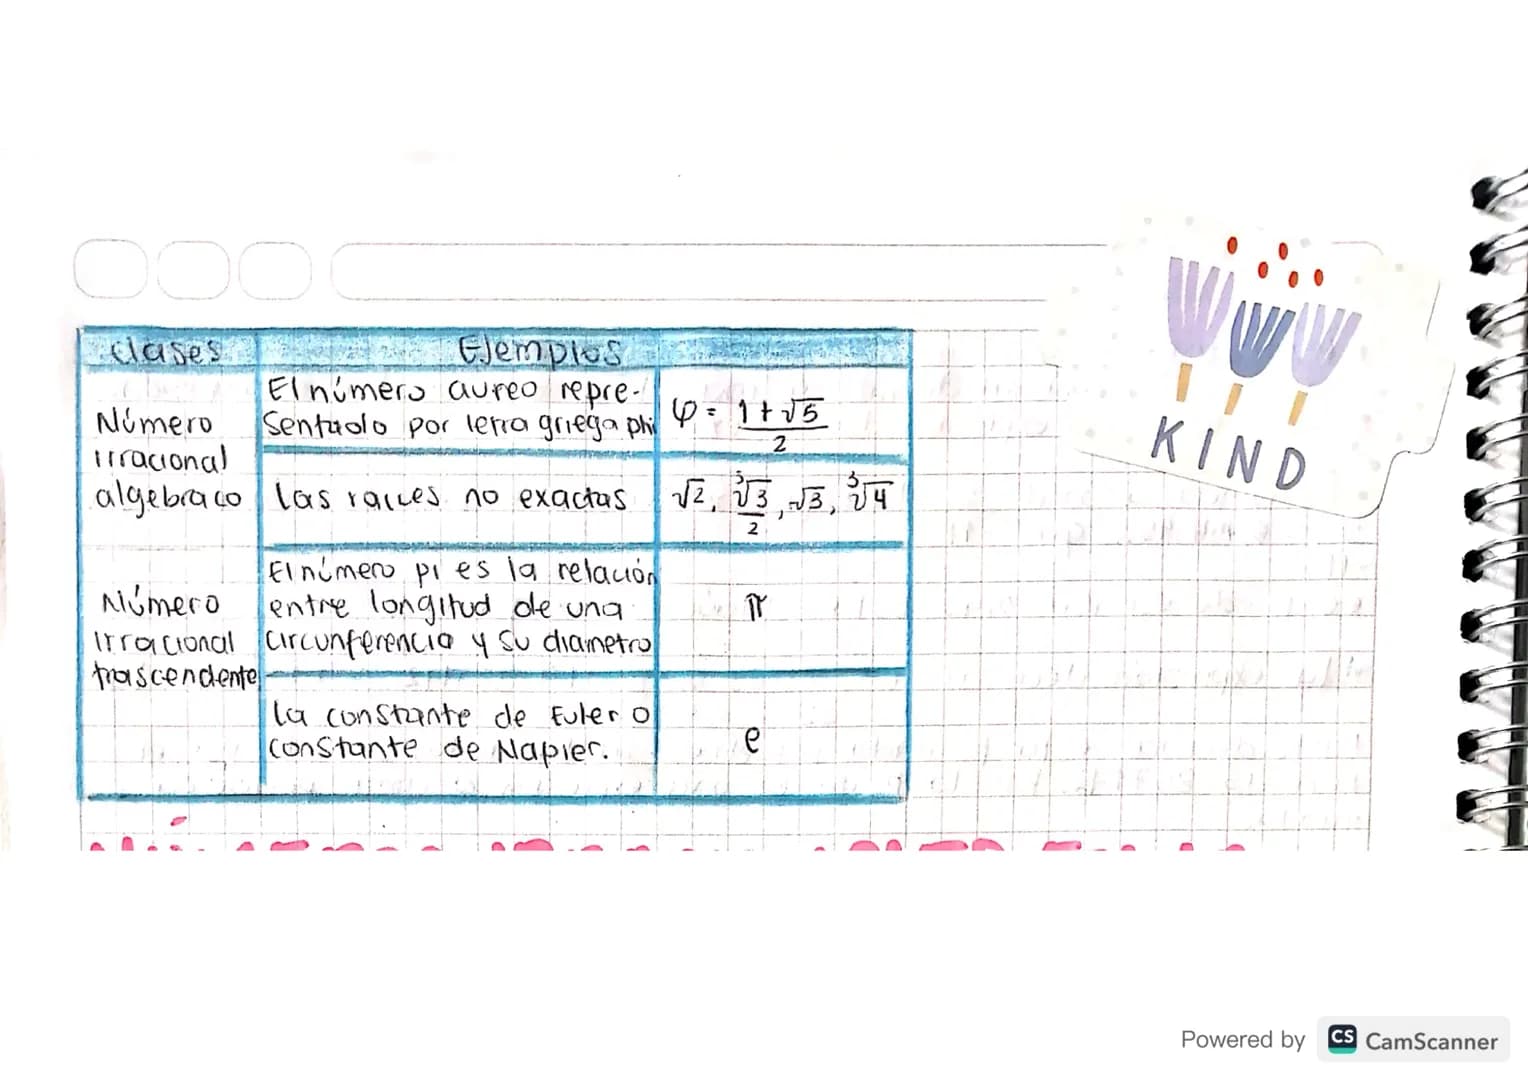 clases Ejemplos
El número aureo repre-
Sentado por letra griega phi
φ = 1+√5
2
Número
irracional
algebraco
las raices no exactas
√2, ³√3, -√3, ³√4
2
El número pi es la relación
entre longitud de una
circunferencia y su diametro
π
Número
Irracional
trascendente
La constante de Euler o
constante de Napier.
e
KIND
Powered by CS CamScanner